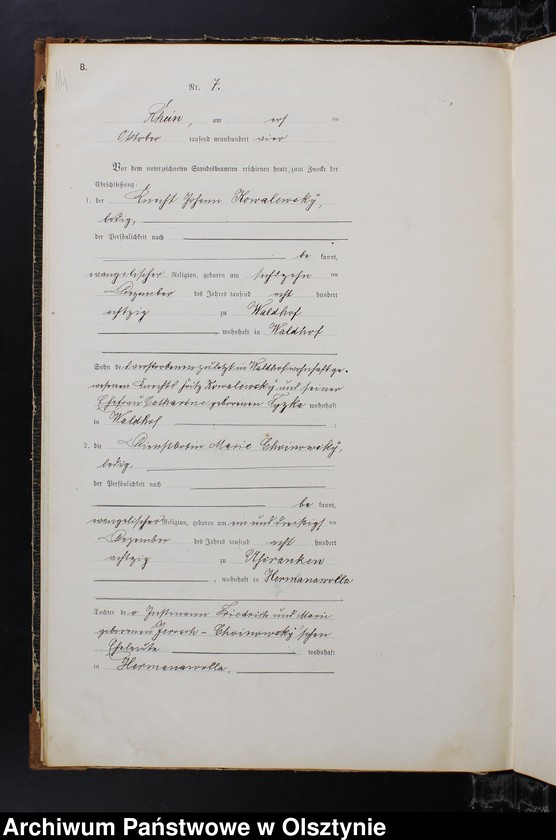 B.
14
Nr. 7.
Rhein, am ersten
Oktober tausend neunhundert vier
Vor dem unterzeichneten Standesbeamten erschienen heute zum Zwecke der
Eheschließung:
1. der Knecht Johann Kowalewsky,
ledig,
der Persönlichkeit nach
be kannt,
evangelischer Religion, geboren am sechszehn ten
Dezember des Jahres tausend acht hundert
achtzig zu Waldhof
, wohnhaft in Waldhof
Sohn des verstorbenen zuletzt in Waldhof wohnhaft ge-
wesenen Knechts Fritz Kowalewsky und seiner
Ehefrau Catharine geborenen wohnhaft
in Waldhof ;
2. die Dienstbotin Marie Choinowsky,
ledig,
der Persönlichkeit nach
be kannt,
evangelischer Religion, geboren am ein und dreißigs ten
Dezember des Jahres tausend acht hundert
achtzig zu Uszranken
, wohnhaft in Hermanawolla
Tochter der Instmann Friedrich und Marie
geborenen - Choinowsky'schen
Eheleute wohnhaft
in Hermanawolla.
Archiwum Państwowe w Olsztynie